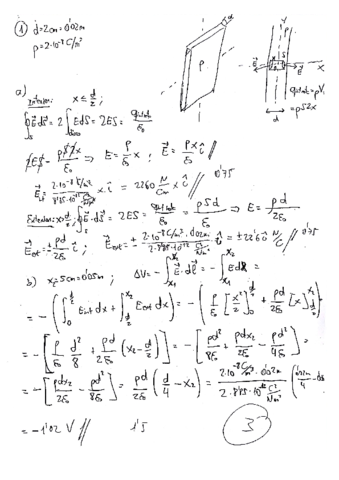 ① d=2cm=0'02m
ρ=2·10⁻⁸ C/m³
d
ρ
y
S
E⃗
E⃗
x
d
q int = ρV
= ρS2x
a)
Interior: x ≤ d/2 ;
∮ E⃗ dS⃗ = 2∫ E dS = 2ES = q int/ε₀
2ES = ρS2x/ε₀ ⇒ E = ρ/ε₀ x ; E⃗ = ρx/ε₀ î // 0'75
E⃗ int = 2·10⁻⁸ C/m³/8'85·10⁻¹² C²/Nm² x î = 2260 N/Cm x î //
Exterior: x>d/2 ; ∮ E⃗·dS⃗ = 2ES = q int/ε₀ = ρSd/ε₀ ⇒ E = ρd/2ε₀
E⃗ext = ± ρd/2ε₀ î ; E⃗ext = ± 2·10⁻⁸ C/m³ · 0'02m/2·8'85·10⁻¹² C²/Nm² î = ±22'60 N/C î // 0'75
b) x₂=5cm=0'05m ; ΔV = −∫ₓ₁ˣ² E⃗·dl⃗ = −∫ₓ₁ˣ² E dx =
= −(∫₀^{d/2} Eint dx + ∫_{d/2}^{x₂} Eext dx) = −(ρ/ε₀ [x²/2]₀^{d/2} + ρd/2ε₀ [x]_{d/2}^{x₂}) =
= −[ρ/ε₀ d²/8 + ρd/2ε₀ (x₂ − d/2)] = −[ρd²/8ε₀ + ρdx₂/2ε₀ − ρd²/4ε₀] =
= −[ρdx₂/2ε₀ − ρd²/8ε₀] = ρd/2ε₀ (d/4 − x₂) = 2·10⁻⁸ C/m³ · 0'02m/2·8'85·10⁻¹² C²/Nm² (0'02m/4 − 0'05
= −1'02 V // 1'5
3